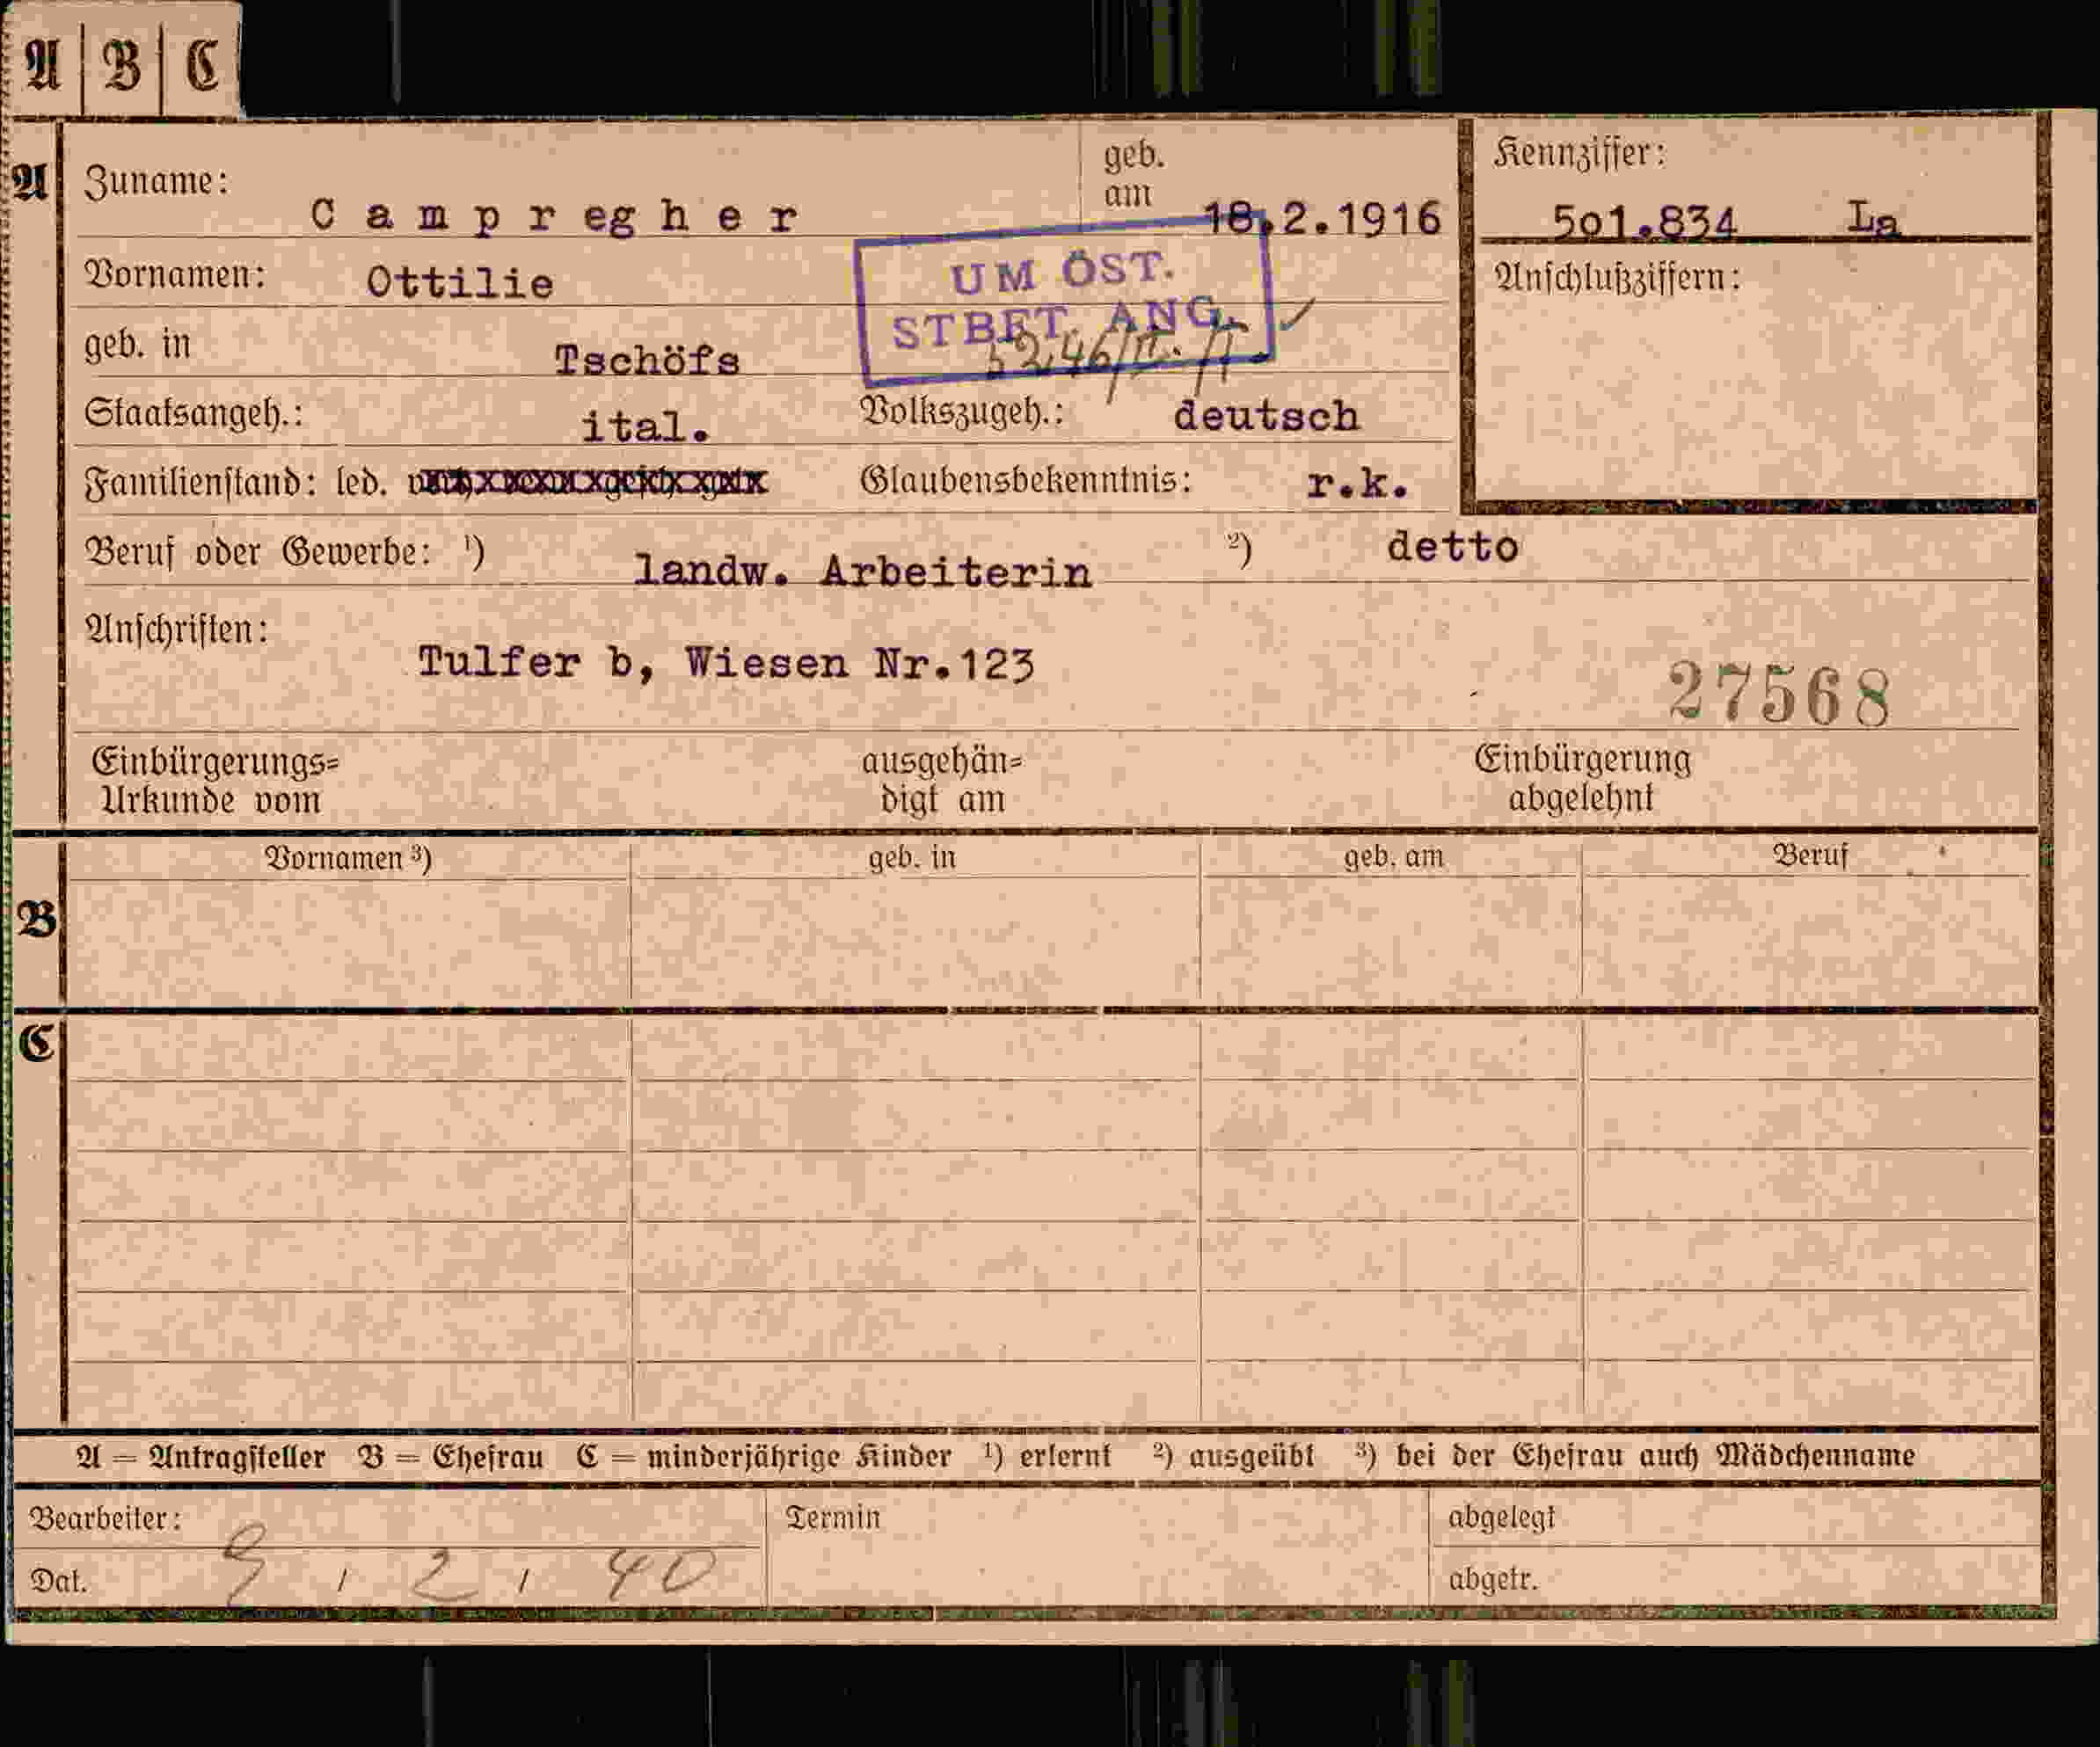 A | B | C
A
Zuname: Campregher geb. am 18.2.1916
Kennziffer: 501.834 La
Vornamen: Ottilie
Anschlußziffern:
UM ÖST.
STBET. ANG.
geb. in Tschöfs
Staatsangeh.: ital. Volkszugeh.: deutsch
Familienstand: led. Glaubensbekenntnis: r.k.
Beruf oder Gewerbe: ¹) landw. Arbeiterin ²) detto
Anschriften: Tulfer b, Wiesen Nr.123
27568
Einbürgerungs= Urkunde vom
ausgehän= digt am
Einbürgerung abgelehnt
Vornamen ³) geb. in geb. am Beruf
B
C
A = Antragsteller B = Ehefrau C = minderjährige Kinder ¹) erlernt ²) ausgeübt ³) bei der Ehefrau auch Mädchenname
Bearbeiter: Termin abgelegt
Dat. 9 / 2 / 40 abgetr.